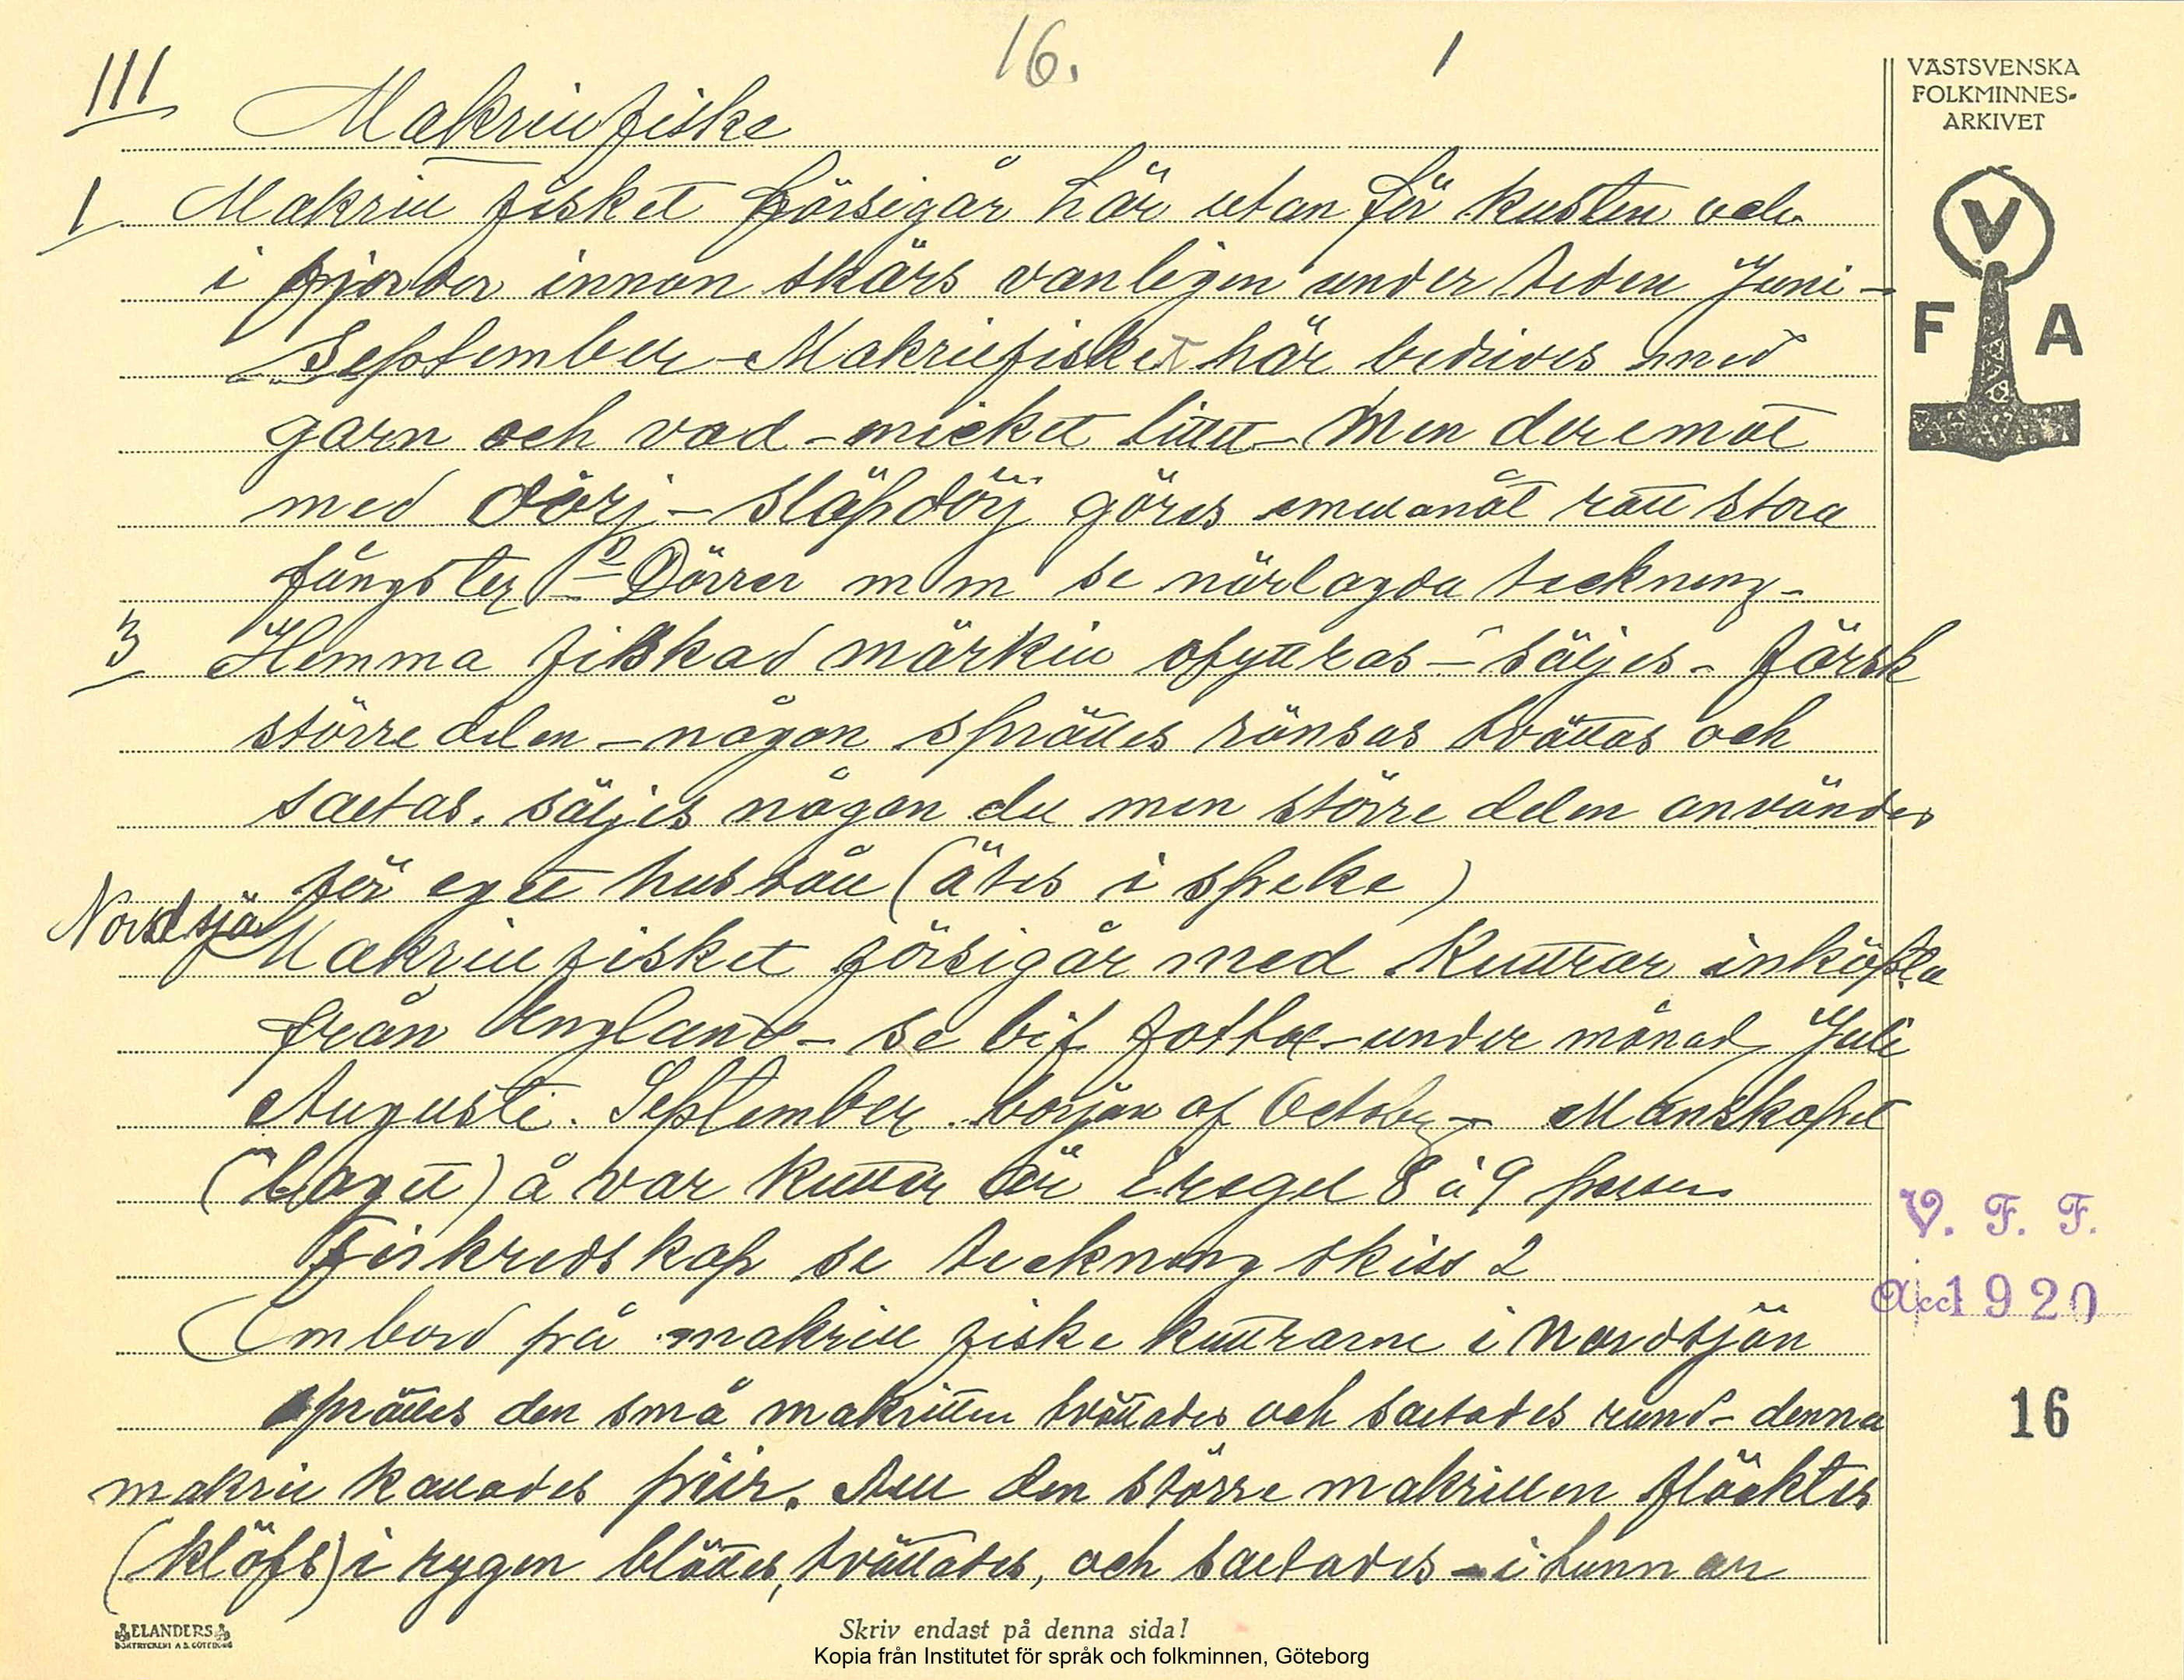 16. 1
VÄSTSVENSKA
FOLKMINNES-
ARKIVET
V
F A
III Makrillfiske
1 Makrill fisket försigår här utan för kusten och
i fjordar innan skärs vanligen under tiden Juni-
September - Makrillfisket här bedrives med
garn och vad - micket litet - Men deremot
med dörj - släpdörj göres emellanåt rätt stora
fångster Dörrer m m se närlagda teckning -
3 Hemma fiskad märkill säljes - färsk
större delen - någon sprättes ränsas tvättas och
saltas. säljes någon del men större delen användes
för eget hus håll (ätes i speke)
Nordsjö
Makrill fisket försigår med Kuttrar inköpta
från England - se bif fotta - under månad Juli
Augusti. September. början af October - Manskapet
(laget) å var kutter är i regel 8 à 9 person
Fiskredskap se teckning skiss 2
Ombord på makrill fiske kuttrarne i Nordsjön
sprättes den små makrillen tvättades och saltades rund - denna
makrill kallades pir. All den större makrillen fläcktes
(klöfs) i rygen blöttes, tvättades, och saltades - i tunnar
V. F. F.
Acc 1920
16
ELANDERS
BOKTRYCKERI A B. GÖTEBORG
Skriv endast på denna sida!
Kopia från Institutet för språk och folkminnen, Göteborg